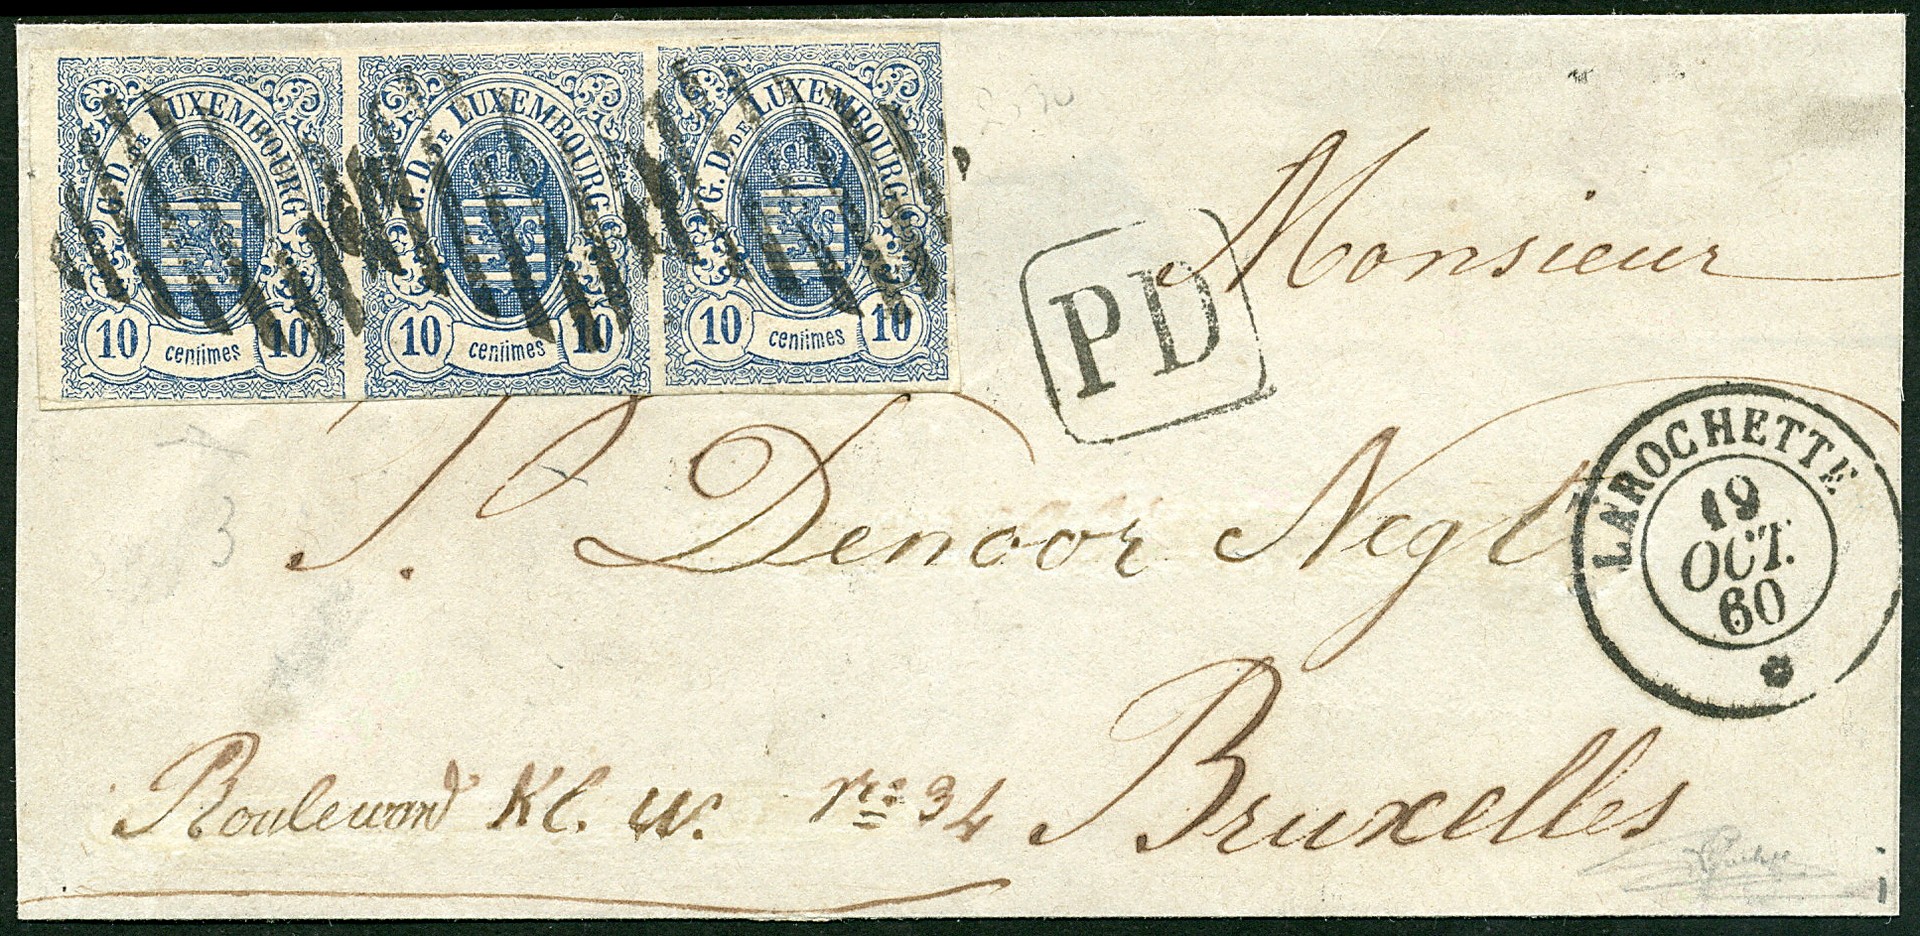 G. D. DE LUXEMBOURG
10 centimes 10
G. D. DE LUXEMBOURG
10 centimes 10
G. D. DE LUXEMBOURG
10 centimes 10
PD
Monsieur
P. Denoor Negt
LAROCHETTE
19
OCT.
60
Boulevard No 34
Bruxelles
3